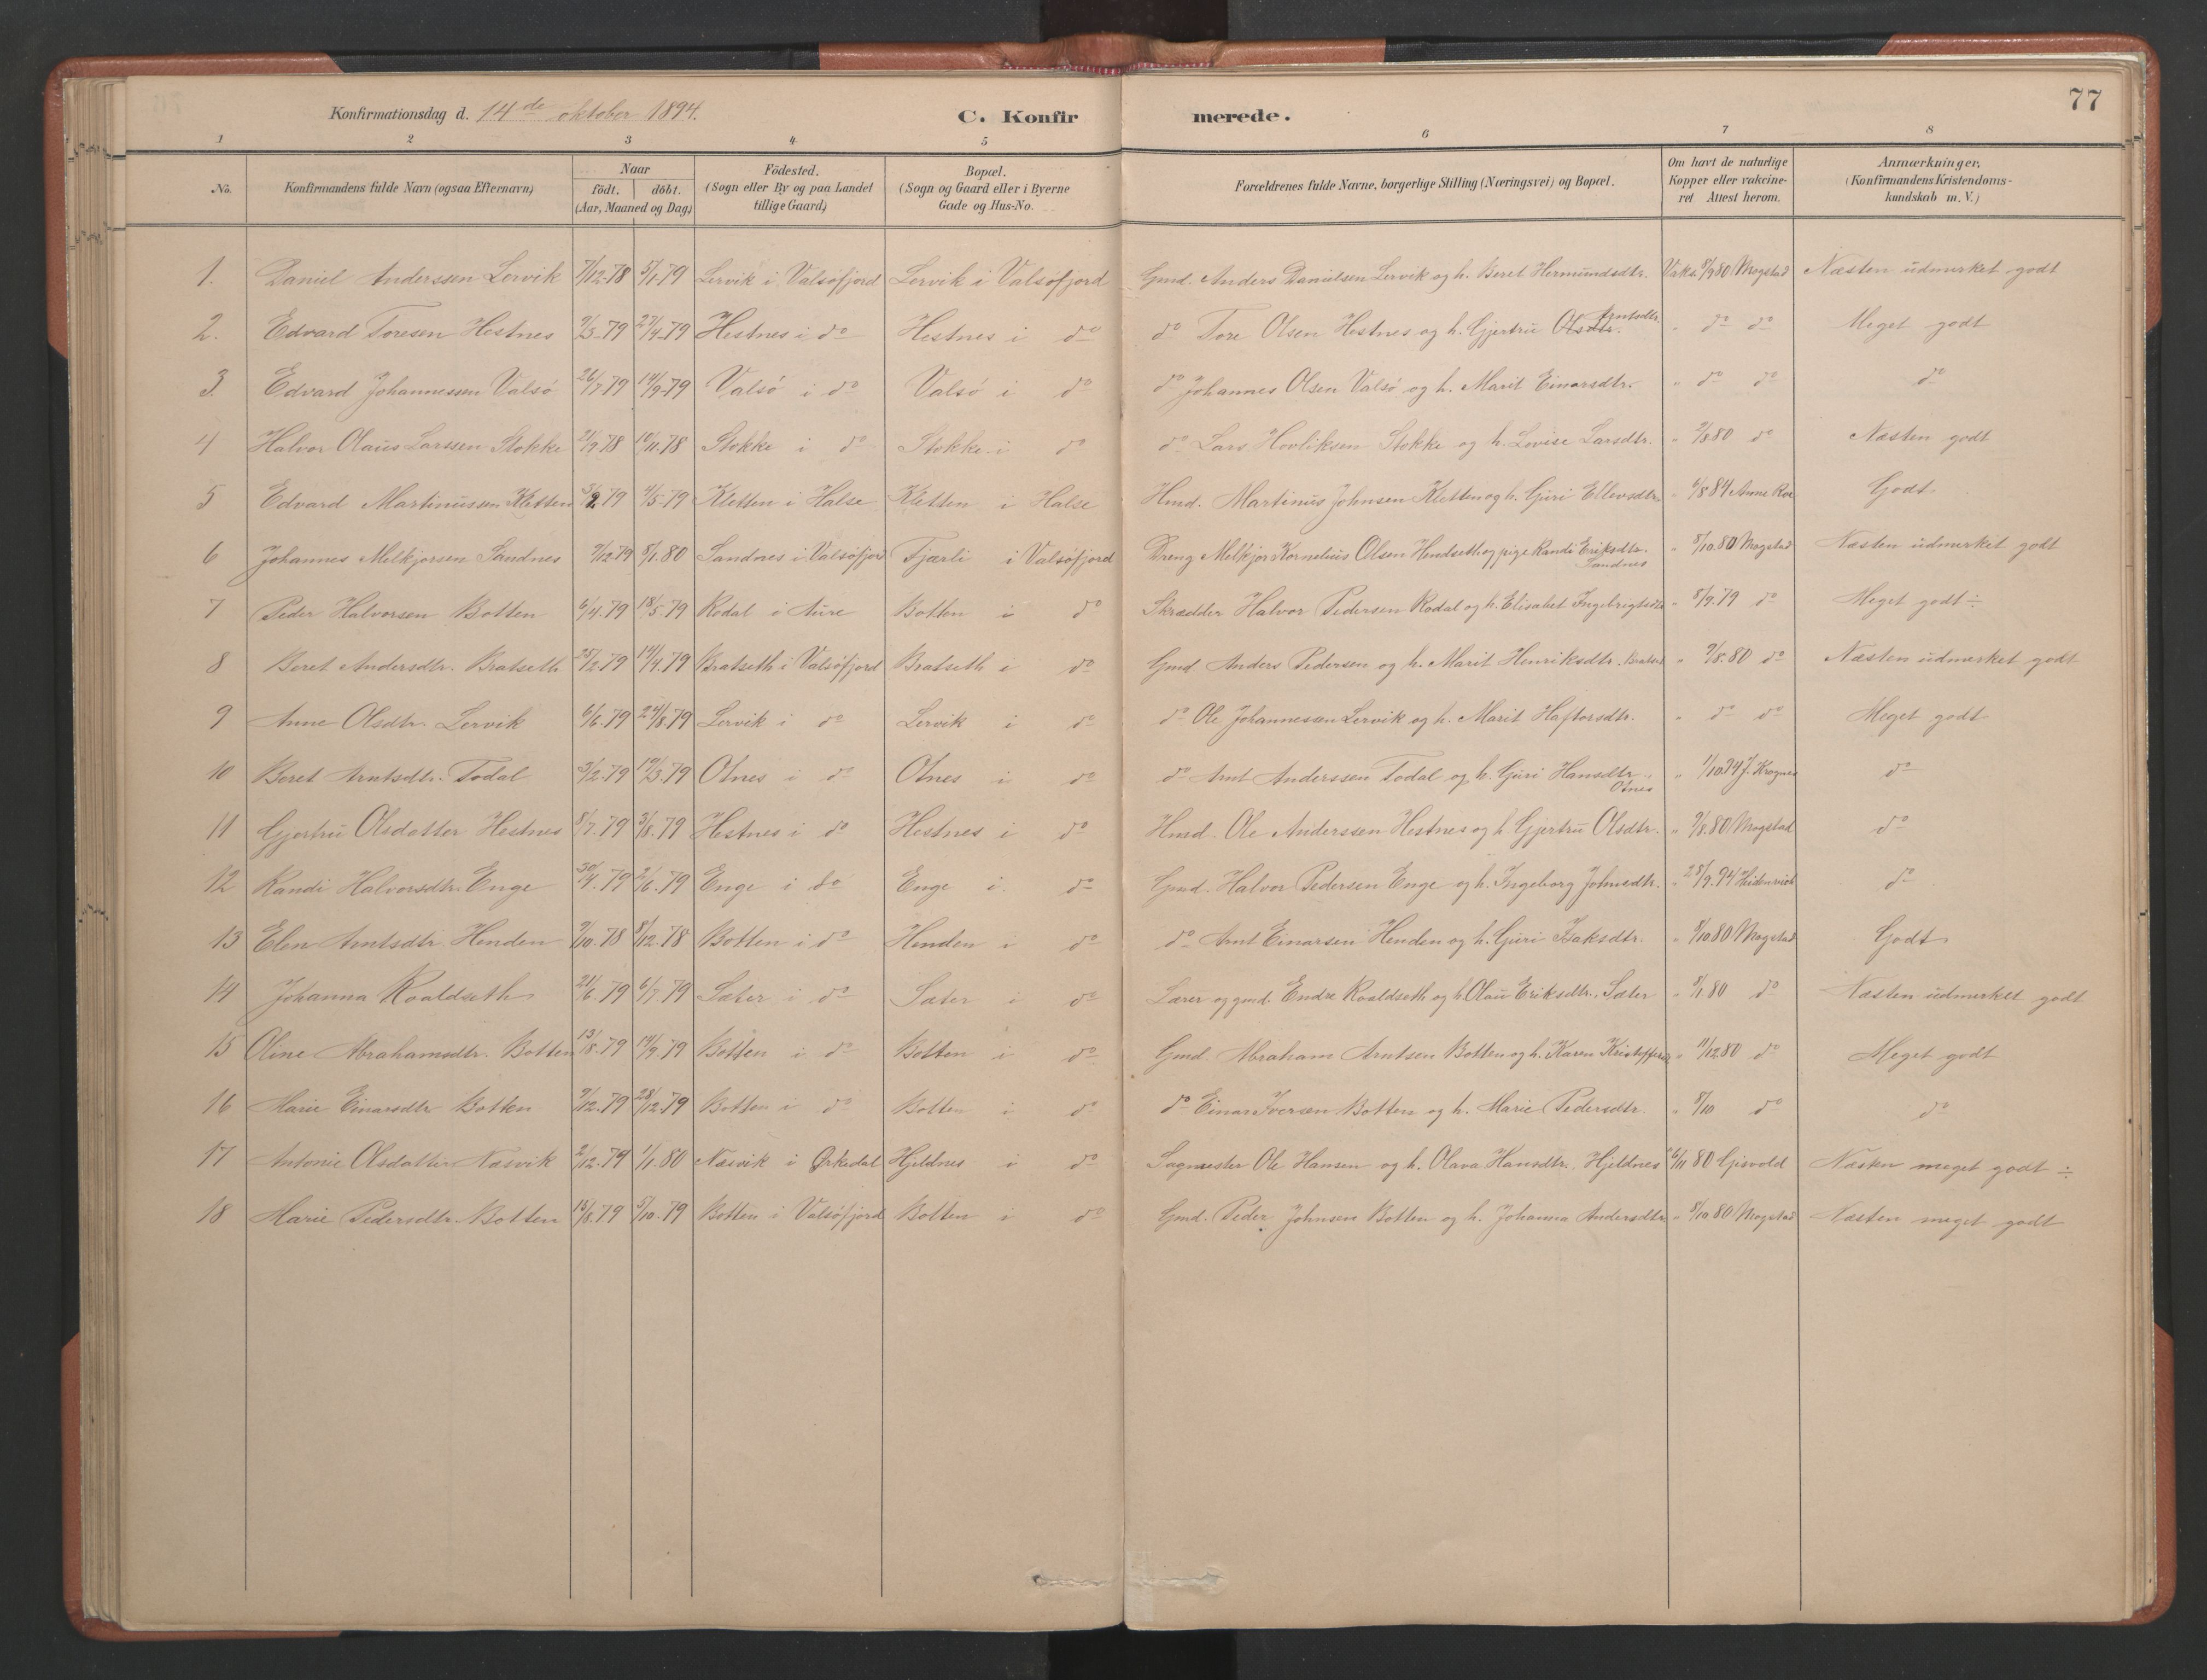 77
Konfirmationsdag d. 14de oktober 1894. C. Konfirmerede.
1 2 3 4 5 6 7 8
No. Konfirmandens fulde Navn (ogsaa Efternavn) Naar födt. döbt. (Aar, Maaned og Dag) Födested. (Sogn eller By og paa Landet tillige Gaard) Bopæl. (Sogn og Gaard eller i Byerne Gade og Hus-No. Forældrenes fulde Navne, borgerlige Stilling (Næringsvei) og Bopæl. Om havt de naturlige Kopper eller vakcineret Attest herom. Anmærkninger, (Konfirmandens Kristendomskundskab m. V.)
1. Daniel Anderssen Lervik 7/12-78 5/1-79 Lervik i Valsöfjord Lervik i Valsöfjord Gmd. Anders Danielsen Lervik og h. Beret Hermundsdtr. Vaks. 8/9 80 Mogstad Næsten udmerket godt
2. Edvard Toresen Hestnes 9/3-79 27/4-79 Hestnes i do Hestnes i do do Tore Olsen Hestnes og h. Gjertru Olsdtr. Arntsdtr. " do do Meget godt
3. Edvard Johannessen Valsö 26/7-79 14/9-79 Valsö i do Valsö i do do Johannes Olsen Valsö og h. Marit Einarsdtr. " do do do
4 Halvor Olaus Larssen Stokke 21/9-78 10/11-78 Stokke i do Stokke i do do Lars Hovliksen Stokke og h. Lovise Larsdtr. " 9/8 80 do Næsten godt
5 Edvard Martinussen Kletten 3/2 79 4/5-79 Kletten i Halse Kletten i Halse Hmd. Martinus Johnsen Kletten og h. Guri Ellevsdtr " 6/8 84 Anne Roe Godt
6 Johannes Melkjorsen Sandnes 9/12 79 8/1.80 Sandnes i Valsöfjord Fjærli i Valsöfjord Dreng Melkjor Kornelius Olsen Hendseth og pige Randi Eriksdtr. Sandnes " 8/10 80 Mogstad Næsten udmerket godt
7 Peder Halvorsen Botten 6/4.79 18/5-79 Rodal i Aure Botten i do Skrædder Halvor Pedersen Rodal og h. Elisabet Ingebrigtsdtr " 8/9.79 do Meget godt ÷
8 Beret Andersdtr. Bratseth 25/2 79 14/4.79 Bratseth i Valsöfjord Bratseth i do Gmd. Anders Pedersen og h. Marit Henriksdtr. Bratset " 9/8.80 do Næsten udmerket godt
9 Anne Olsdtr. Lervik 6/6.79 24/8 79 Lervik i do Lervik i do do Ole Johannessen Lervik og h. Marit Haftorsdtr. " do do Meget godt
10 Beret Arntsdtr. Todal 3/2.79 19/3.79 Otnes i do Otnes i do do Arnt Anderssen Todal og h. Guri Hansdtr. Otnes " 1/10 94 J. Krognes do
11 Gjertru Olsdatter Hestnes 8/7.79 3/8.79 Hestnes i do Hestnes i do Hmd. Ole Anderssen Hestnes og h Gjertru Olsdtr. " 9/8.80 Mogstad do
12 Randi Halvorsdtr. Enge 30/4.79 2/6.79 Enge i do Enge i do Gmd. Halvor Pedersen Enge og h. Ingeborg Johnsdtr. " 28/9.94 do
13 Elen Arntsdtr. Henden 9/10.78 8/12.78 Botten i do Henden i do do Arnt Einarsen Henden og h. Guri Isaksdtr. " 8/10 80 Mogstad Godt
14 Johanna Roaldseth 21/6.79 6/7.79 Sæter i do Sæter i do Lærer og gmd. Endre Roaldseth og h. Olau Eriksdtr. Sæter " 8/1.80 do Næsten udmerket godt
15 Oline Abrahamsdtr. Botten 13/8.79 14/9.79 Botten i do Botten i do Gmd. Abraham Arntsen Botten og h. Karen Kristoffersdtr " 11/12 80 do Meget godt
16 Marie Einarsdtr Botten 9/12.79 28/12.79 Botten i do Botten i do do Einar Iversen Botten og h. Marie Pedersdtr. " 8/10 do do
17 Antonie Olsdatter Næsvik 2/12.79 1/1.80 Næsvik i Ørkedal Hjeldnes i do Sagmester Ole Hansen og h. Olava Hansdtr. Hjeldnes 26/11 80 Gisvold Næsten meget godt ÷
18 Marie Pedersdtr. Botten 15/8.79 5/10.79 Botten i Valsöfjord Botten i do Gmd. Peder Johnsen Botten og h. Johanna Andersdtr " 8/10 80 Mogstad Næsten meget godt